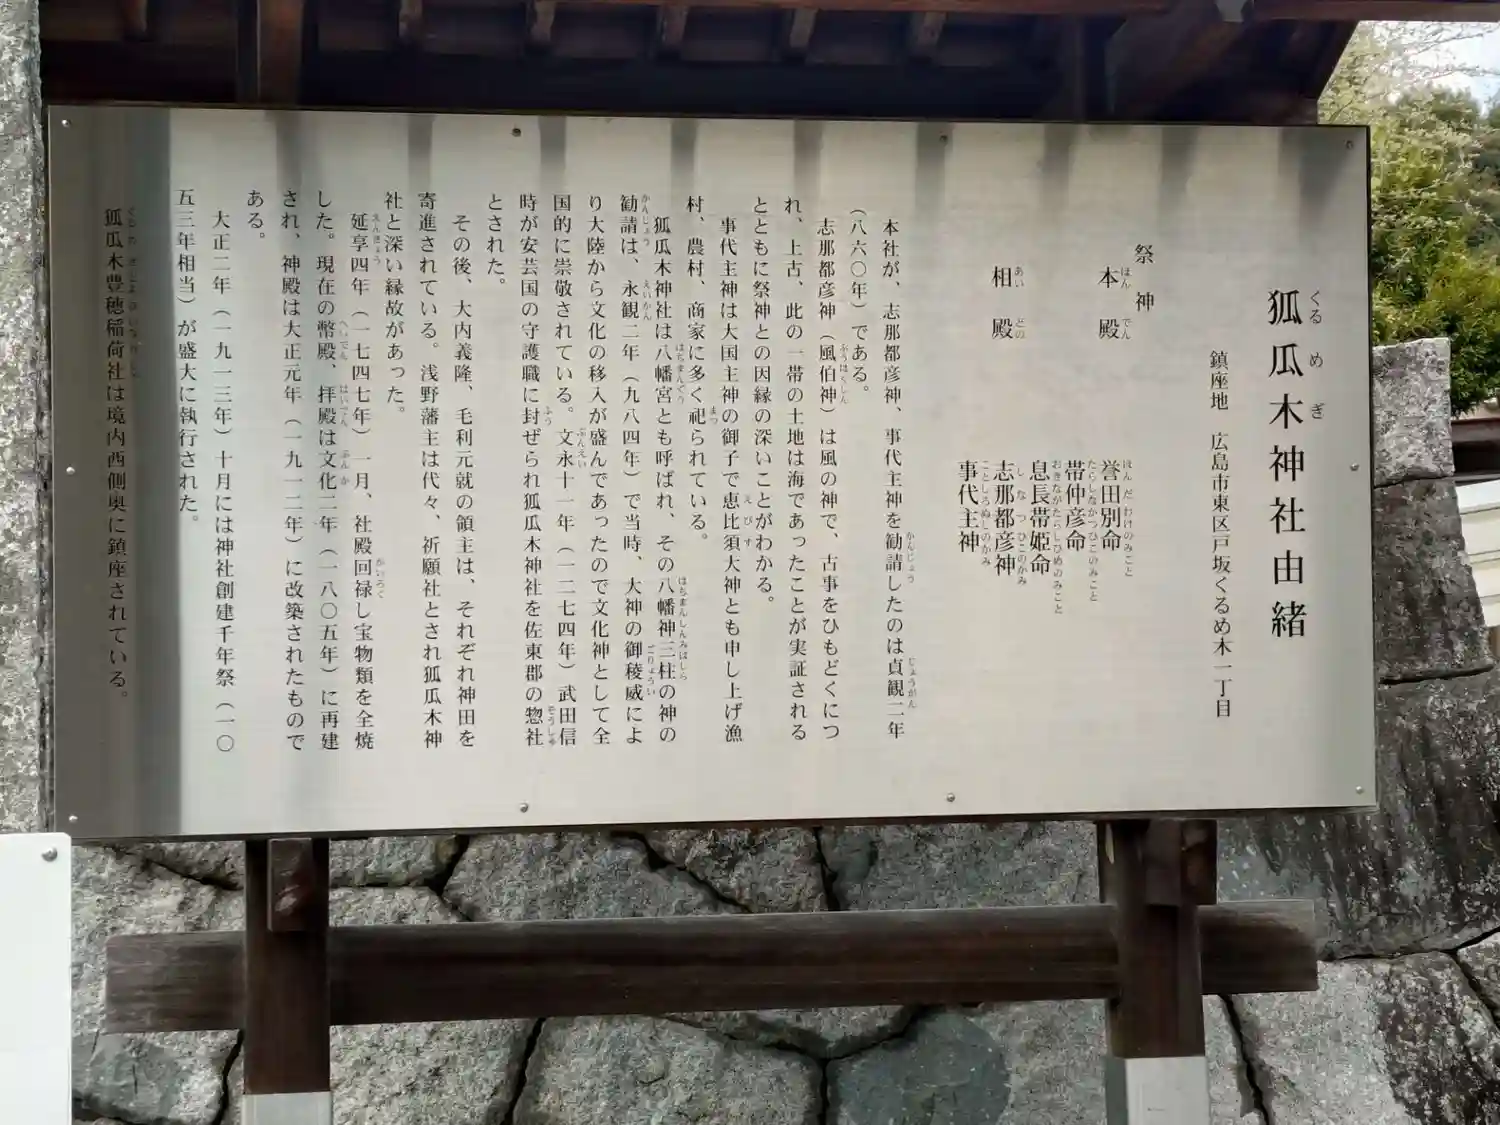 狐瓜木神社由緒
鎮座地　広島市東区戸坂くるめ木一丁目
祭神
本殿　誉田別命
帯仲彦命
息長帯姫命
相殿　志那都彦神
事代主神
本社が、志那都彦神、事代主神を勧請したのは貞観二年
（八六〇年）である。
志那都彦神（風伯神）は風の神で、古事をひもどくにつ
れ、上古、此の一帯の土地は海であったことが実証される
とともに祭神との因縁の深いことがわかる。
事代主神は大国主神の御子で恵比須大神とも申し上げ漁
村、農村、商家に多く祀られている。
狐瓜木神社は八幡宮とも呼ばれ、その八幡神三柱の神の
勧請は、永観二年（九八四年）で当時、大神の御稜威によ
り大陸から文化の移入が盛んであったので文化神として全
国的に崇敬されている。文永十一年（一二七四年）武田信
時が安芸国の守護職に封ぜられ狐瓜木神社を佐東郡の惣社
とされた。
その後、大内義隆、毛利元就の領主は、それぞれ神田を
寄進されている。浅野藩主は代々、祈願社とされ狐瓜木神
社と深い縁故があった。
延享四年（一七四七年）一月、社殿回禄し宝物類を全焼
した。現在の幣殿、拝殿は文化二年（一八〇五年）に再建
され、神殿は大正元年（一九一二年）に改築されたもので
ある。
大正二年（一九一三年）十月には神社創建千年祭（一〇
五三年相当）が盛大に執行された。
狐瓜木豊穂稲荷社は境内西側奥に鎮座されている。